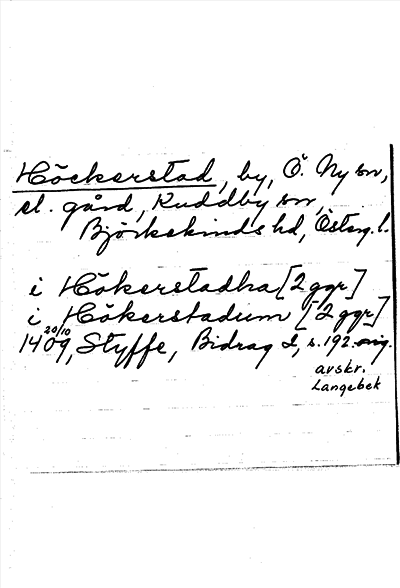 Höckerstad, by, Ö. Ny sn,
el. gård, Kuddby sn,
Björkekinds hd, Österg. l.
i Hökerstadha [2 ggr]
i Hökerstadum [2 ggr]
20/10
1409, Styffe, Bidrag I, s. 192. orig.
avskr.
Langebek